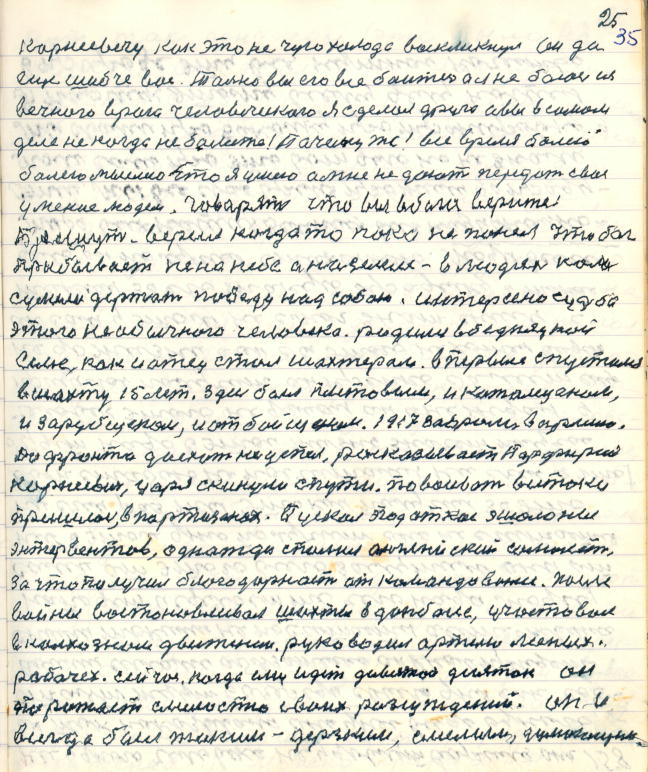 25
35
Корнеевечу как это не чуго холода воскликнул он да
еще шибче вос. Только вы его все боитес а я не боюс. из
вечного врага человечиского я сделал друга а вы в самом
деле не когда не болете! Почему же! все время болею
болею мыслю Что я умею а мне не дают передат свое
умение людем. говарят что вы в бога верите!
верел когда то пока не понел Что бог
прибывает не на небе а на земле - в людях коли
сумели держат победу над собой. интерсено судба
этого необычного человека. родилса в бедняцкой
семе, как и отец стал шахтерам. в первые спустилса
в шахту 15 лет. Здес был плитовым, и каталщеком,
и зарубщеком, и отбойщеком. 1917 забрали в армию.
до фронта доехат не успел, расказывает Парфирий
Корневич, царя скинули с пути. повоеват вытоки
пришлос, в партизанах. Пускал под откос эшолоны
энтервентов, однажды спалил английский самолёт,
за что получил благодарност от командовоние. после
войны востоновливал шахты в донбасе, участвовал
в колхозном движении. руководил артелю
рабочех. сейчас, когда ему идёт девятой десяток он
поражает смелостю своих разсуждений. он и
всегда был таким - дерзким, смелым,